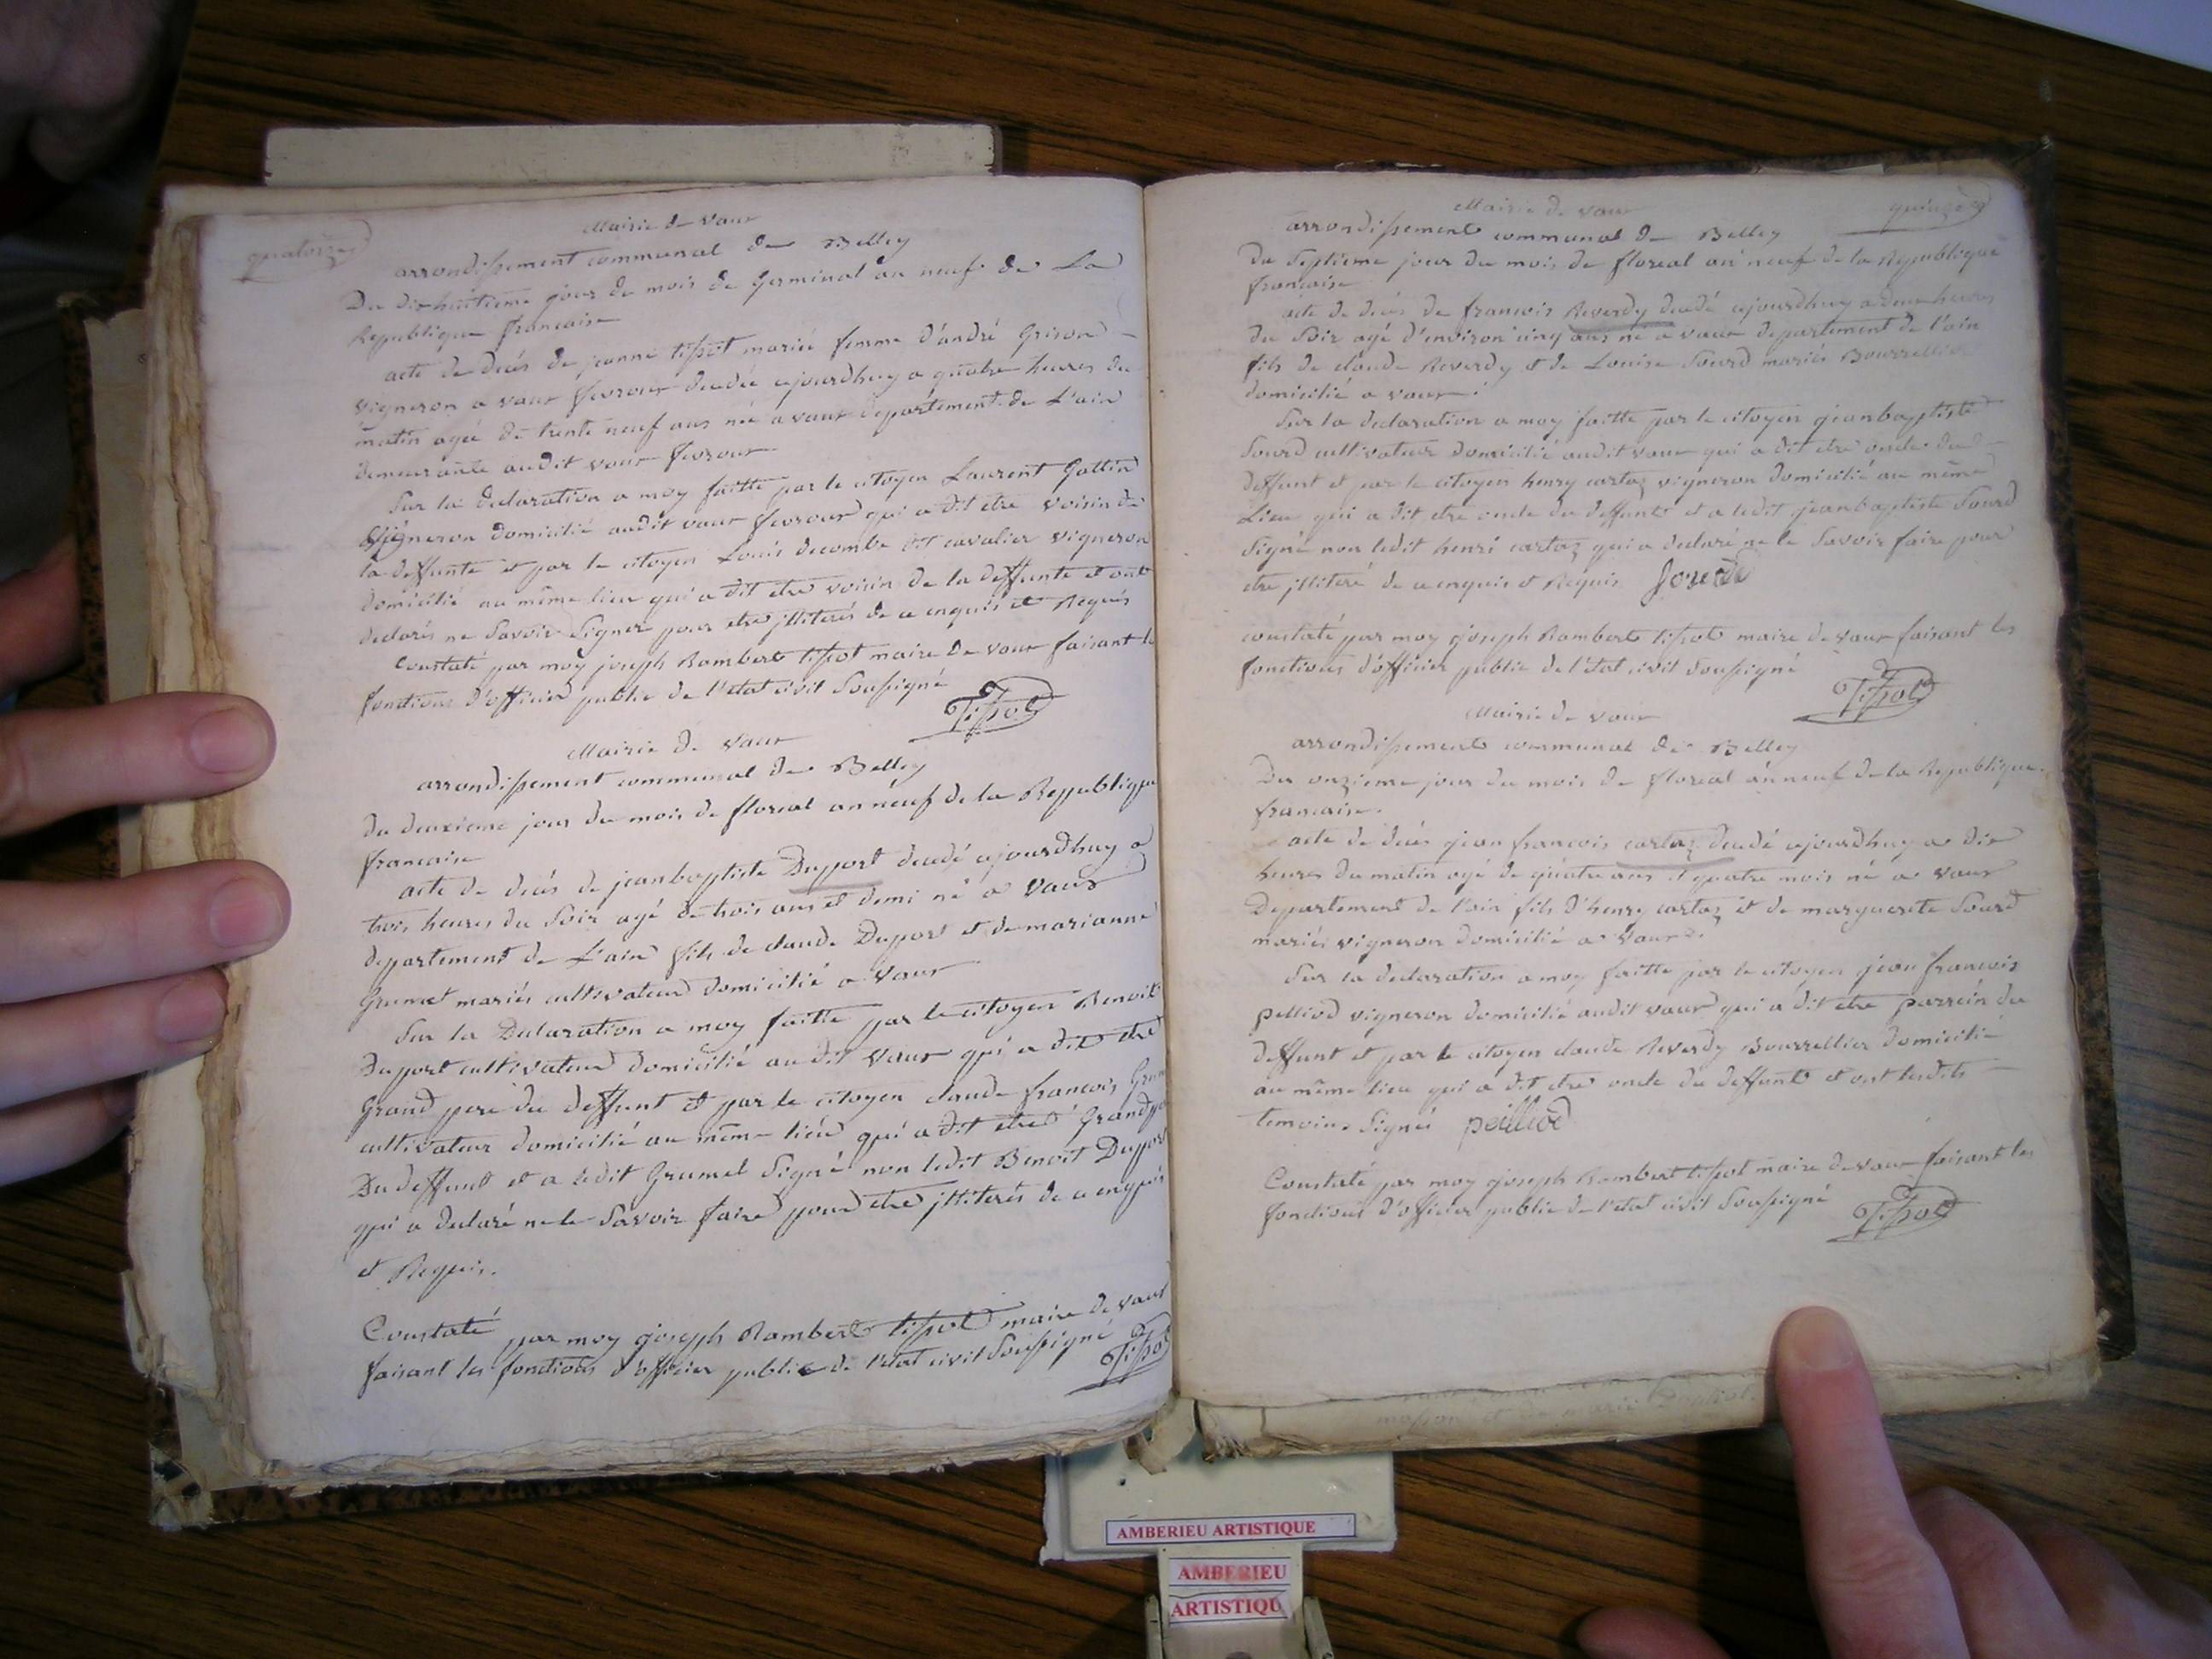 quatorze
Mairie de vaux
arrondissement communal de Belley
Du dix huitieme jour du mois de Germinal an neuf de La
Republique francaise
acte de decés de jeanne tissot mariée femme d'andré Grison
vigneron a vaux fevroux decedée ajourdhuy a quatre heures du
matin agée de trente neuf ans née a vaux departement de L'ain
demeurante audit vaux fevroux
Sur la declaration a moy faitte par le citoyen Laurent Gottin
vigneron domicilié audit vaux fevroux qui a dit etre voisin de
la deffunte et par le citoyen Louis decombe dit cavalier vigneron
domicilié au même lieu qui a dit etre voisin de la deffunte et ont
declarés ne Savoir Signer pour etre jlliterés de ce enquis et Requis
Constaté par moy joseph Rambert tissot maire de vaux faisant les
fonctions d'officier public de l'etat civil Soussigné
Tissot
Mairie de vaux
arrondissement communal de Belley
du deuxieme jour du mois de floreal an neuf de la Republique
francaise
acte de decés de jeanbaptiste Duport decedé ajourdhuy a
trois heures du Soir agé de trois ans et demi né a vaux
departement de L'ain fils de claude Duport et de marianne
Grumet mariés cultivateur domicilié a vaux
Sur la Declaration a moy faitte par le citoyen Benoit
Duport cultivateur domicilié au dit vaux qui a dit etre
Grand pere du deffunt et par le citoyen claude francois
cultivateur domicilié au même lieu qui a dit etre Grandpere
Du deffunt et a ledit Grumet Signé non ledit Benoit Duport
qui a declaré ne le Savoir faire pour etre jlliterés de ce enquis
et Requis.
Constaté par moy joseph Rambert tissot maire de vaux
faisant les fonctions d'officier public de l'etat civil Soussigné
Tissot
quinze
Mairie de vaux
arrondissement communal de Belley
Du Septieme jour du mois de floreal an neuf de la Republique
francaise
acte de decés de francois Reverdy decedé ajourdhuy a deux heures
du Soir agé d'environ cinq ans né a vaux departement de l'ain
fils de claude Reverdy et de Louise Sourd mariés Bourrellier
domicilié a vaux.
Sur la declaration a moy faitte par le citoyen jeanbaptiste
Sourd cultivateur domicilié audit vaux qui a dit etre oncle du
deffunt et par le citoyen henry cartaz vigneron domicilié au même
Lieu qui a dit etre oncle du deffunt et a ledit jeanbaptiste Sourd
Signé non ledit henri cartaz qui a declaré ne le Savoir faire pour
etre jlliteré de ce enquis et Requis
constaté par moy joseph Rambert tissot maire de vaux faisant les
fonctions d'officier public de l'etat civil Soussigné
Tissot
Mairie de vaux
arrondissement communal de Belley
Du onzieme jour du mois de floreal an neuf de la Republique
francaise.
acte de decés jean francois cartaz decedé ajourdhuy a dix
heures du matin agé de quatre ans et quatre mois né a vaux
Departement de l'ain fils d'henry cartaz et de marguerite Sourd
mariés vigneron domicilié a vaux.
Sur la declaration a moy faitte par le citoyen jean francois
pelliod vigneron domicilié audit vaux qui a dit etre parrein du
deffunt et par le citoyen claude Reverdy Bourrellier domicilié
au même lieu qui a dit etre oncle du deffunt et ont lesdits
temoins Signés peilliod
Constaté par moy joseph Rambert tissot maire de vaux faisant les
fonctions d'officier public de l'etat civil Soussigné
Tissot
AMBERIEU ARTISTIQUE
AMBERIEU
ARTISTIQU